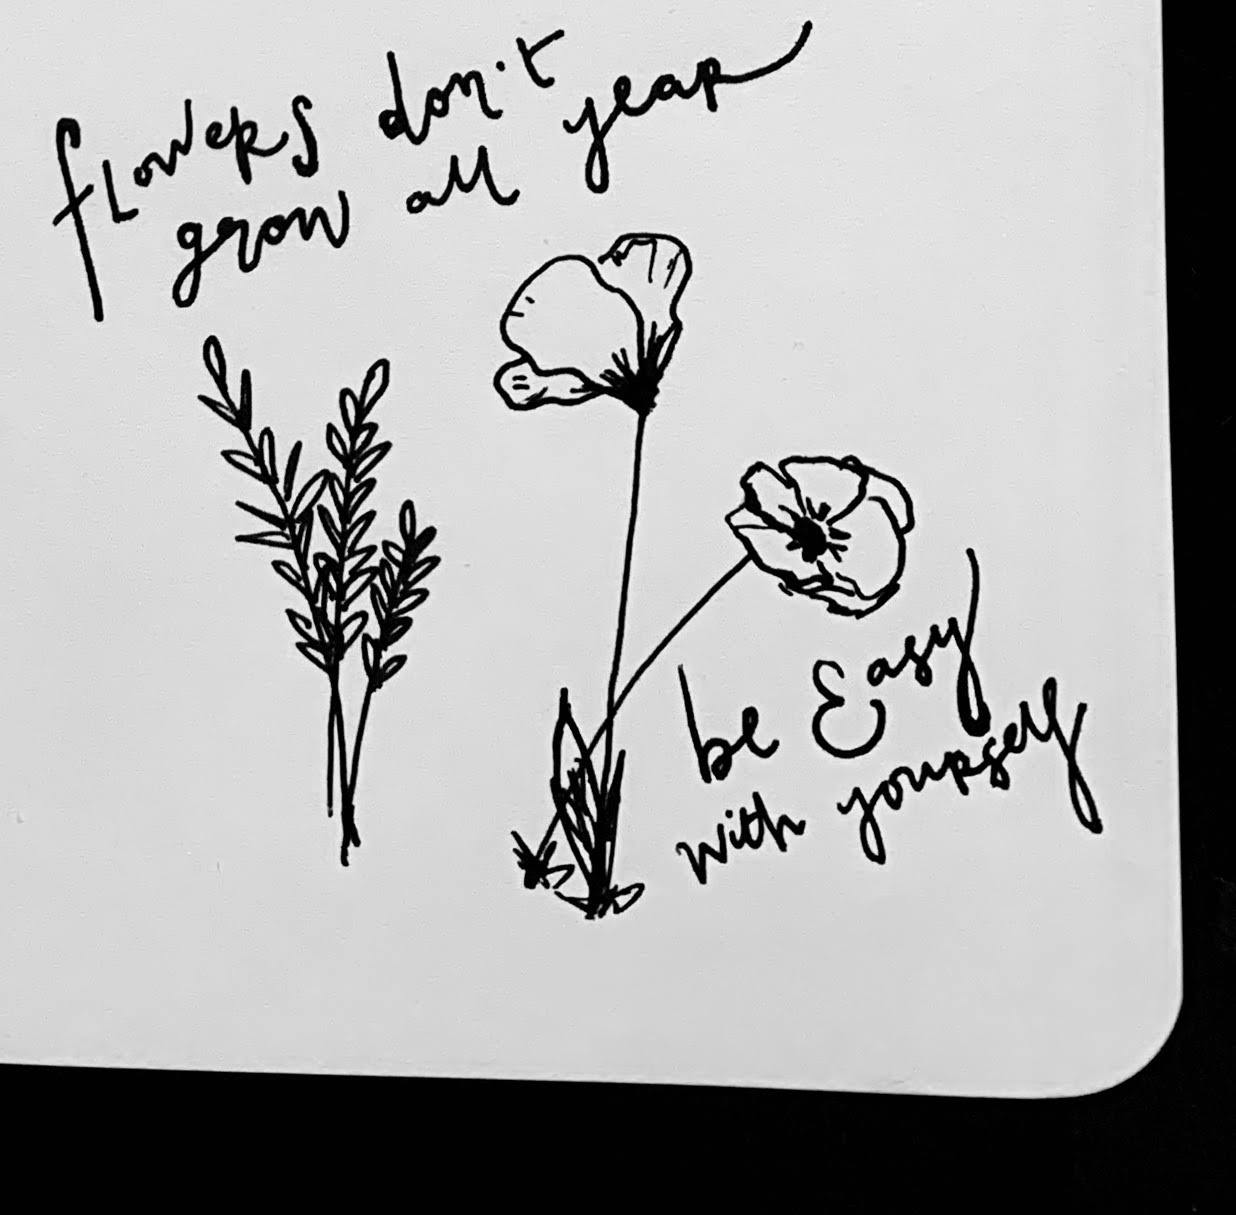 flowers don't
grow all year
be Easy
with yourself